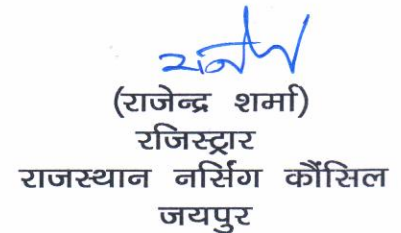 (राजेन्द्र शर्मा)
रजिस्ट्रार
राजस्थान नर्सिंग कौंसिल
जयपुर